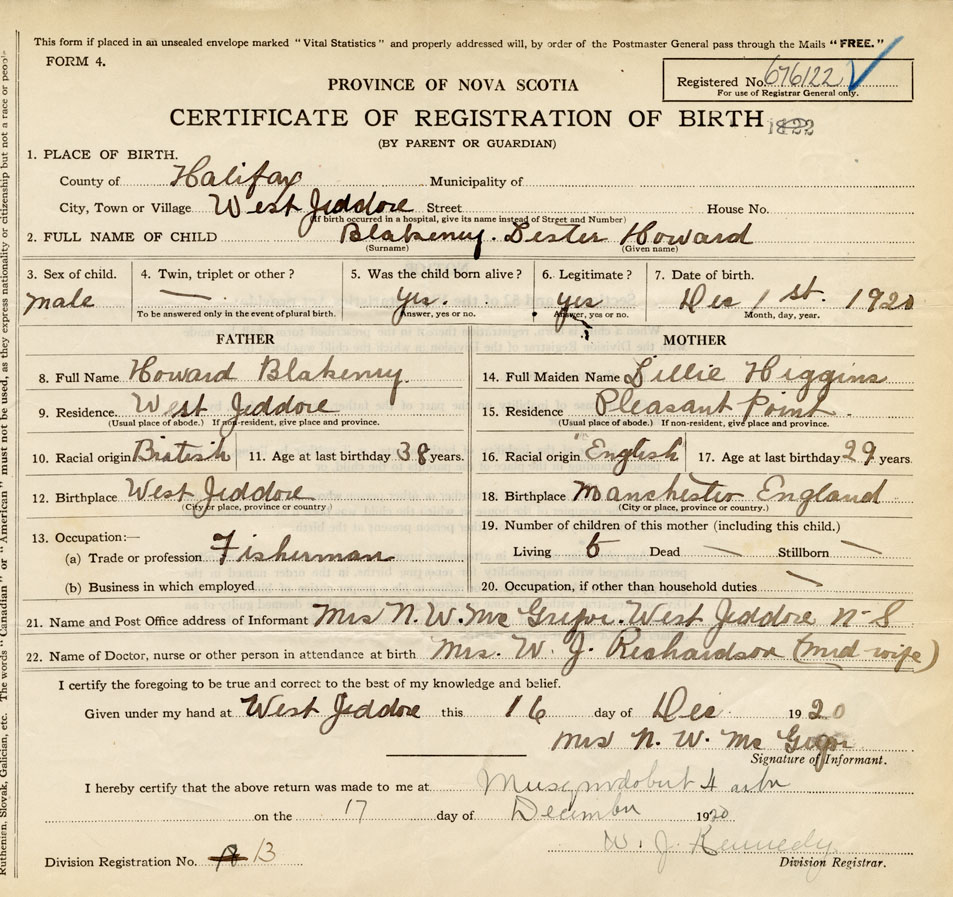 This form if placed in an unsealed envelope marked "Vital Statistics" and properly addressed will, by order of the Postmaster General pass through the Mails "FREE."
FORM 4.
Registered No. 676122
For use of Registrar General only.
PROVINCE OF NOVA SCOTIA
CERTIFICATE OF REGISTRATION OF BIRTH
(BY PARENT OR GUARDIAN)
1. PLACE OF BIRTH.
County of Halifax Municipality of
City, Town or Village West Jeddore Street House No.
(If birth occurred in a hospital, give its name instead of Street and Number)
2. FULL NAME OF CHILD Blakeney. Lester Howard
(Surname) (Given name)
3. Sex of child. 4. Twin, triplet or other? 5. Was the child born alive? 6. Legitimate? 7. Date of birth.
male — Yes. yes Dec 1st. 1920
To be answered only in the event of plural birth. Answer, yes or no. Answer, yes or no. Month, day, year.
FATHER
8. Full Name Howard Blakeney.
9. Residence. West Jeddore
(Usual place of abode.) If non-resident, give place and province.
10. Racial origin British 11. Age at last birthday 38 years.
12. Birthplace West Jeddore
(City or place, province or country.)
13. Occupation:—
(a) Trade or profession Fisherman
(b) Business in which employed
MOTHER
14. Full Maiden Name Lillie Higgins
15. Residence Pleasant Point.
(Usual place of abode.) If non-resident, give place and province.
16. Racial origin English 17. Age at last birthday 29 years.
18. Birthplace Manchester England
(City or place, province or country.)
19. Number of children of this mother (including this child.)
Living Dead — Stillborn —
20. Occupation, if other than household duties —
21. Name and Post Office address of Informant Mrs N. W. Mc Gregor. West Jeddore N-S
22. Name of Doctor, nurse or other person in attendance at birth Mrs. W. J. Richardson (mid-wife)
I certify the foregoing to be true and correct to the best of my knowledge and belief.
Given under my hand at West Jeddore this 16 day of Dec. 1920
Mrs N. W. Mc
Signature of Informant.
I hereby certify that the above return was made to me at Musquodoboit Harbor
on the 17 day of December 1920
W. J. Kennedy
Division Registrar.
Division Registration No. 13
Ruthenian, Slovak, Galician, etc. The words "Canadian" or "American" must not be used, as they express nationality or citizenship but not a race or peopl